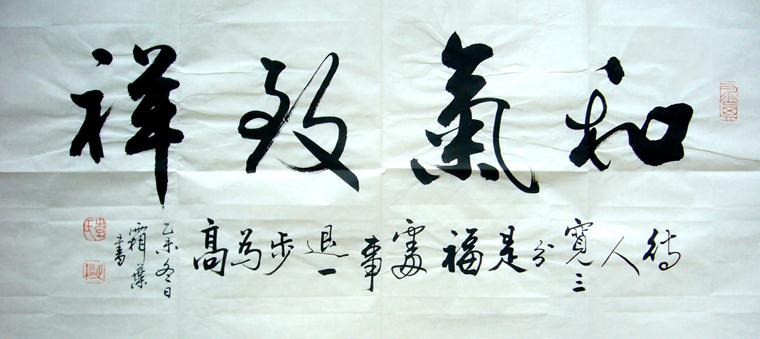 和氣致祥
待人寬三分是福處事退一步為高
乙未冬日
霜葉書